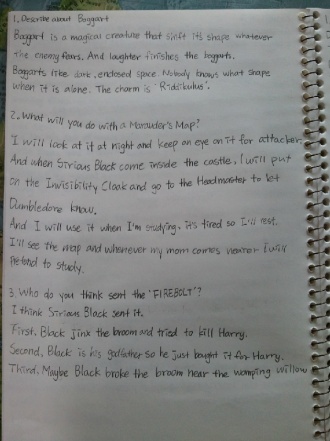 1. Describe about Boggart
Boggart is a magical creature that shift it's shape whatever
the enemy fears. And laughter finishes the boggarts.
Boggarts like dark, enclosed space. Nobody knows what shape
when it is alone. The charm is 'Riddikulus'.
2. What will you do with a Marauder's Map?
I will look at it at night and keep an eye on it for attacker.
And when Sirious Black come inside the castle, I will put
on the Invisibility Cloak and go to the Headmaster to let
Dumbledore know.
And I will use it when I'm studying, it's tired so I'll rest.
I'll see the map and whenever my mom comes nearer I will
pretend to study.
3. Who do you think sent the 'FIREBOLT'?
I think Sirious Black sent it.
First, Black Jinx the broom and tried to kill Harry.
Second, Black is his godfather so he just bought it for Harry.
Third, Maybe Black broke the broom near the Womping willow